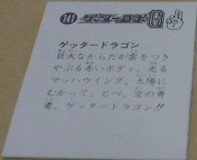 141 ゲッターロボG
ゲッタードラゴン
巨大なからだが雲をつき
やぶる赤いボディ、光る
マッハウイング、太陽に
むかって、とべ、空の勇
者、ゲッタードラゴン!!